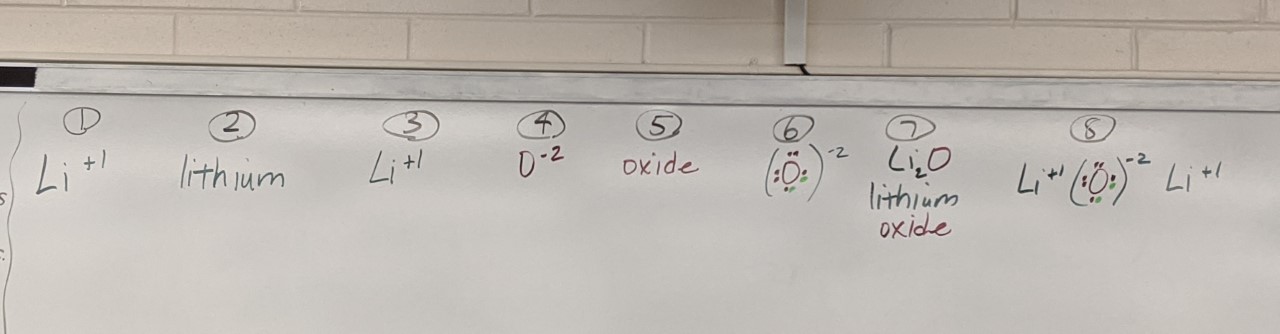 ① ② ③ ④ ⑤ ⑥ ⑦ ⑧
Li⁺¹ lithium Li⁺¹ O⁻² oxide (:Ö:)⁻² Li₂O Li⁺¹(:Ö:)⁻² Li⁺¹
lithium
oxide